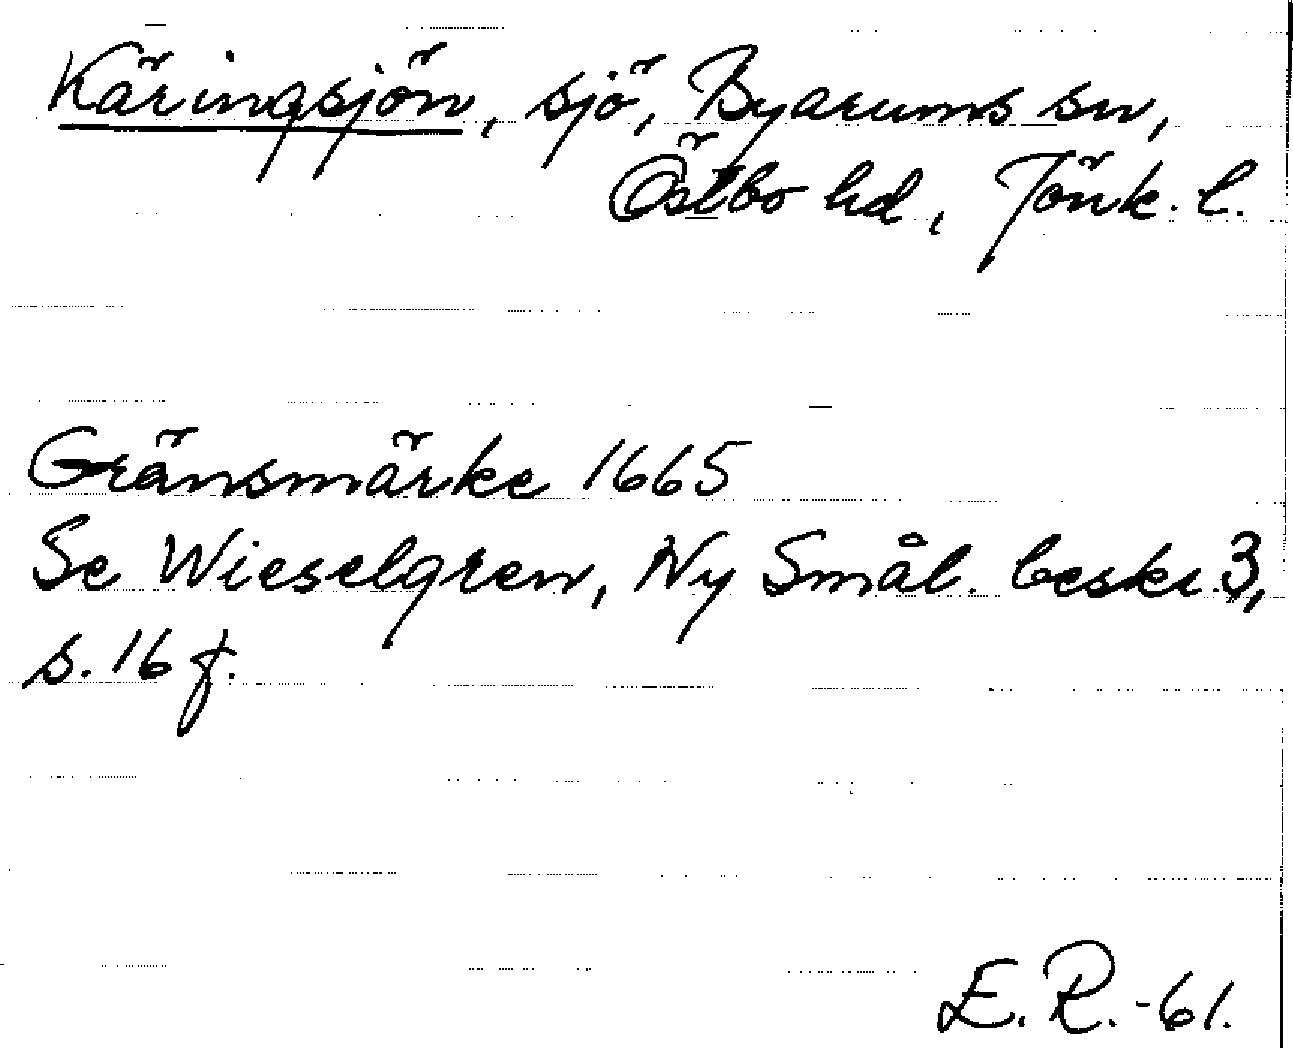 Käringsjön, sjö, Byarums sn,
Östbo hd, Jönk. l.
Gränsmärke 1665
Se Wieselgren, Ny Smål. beskr. 3,
s. 16 f.
E. R. -61.